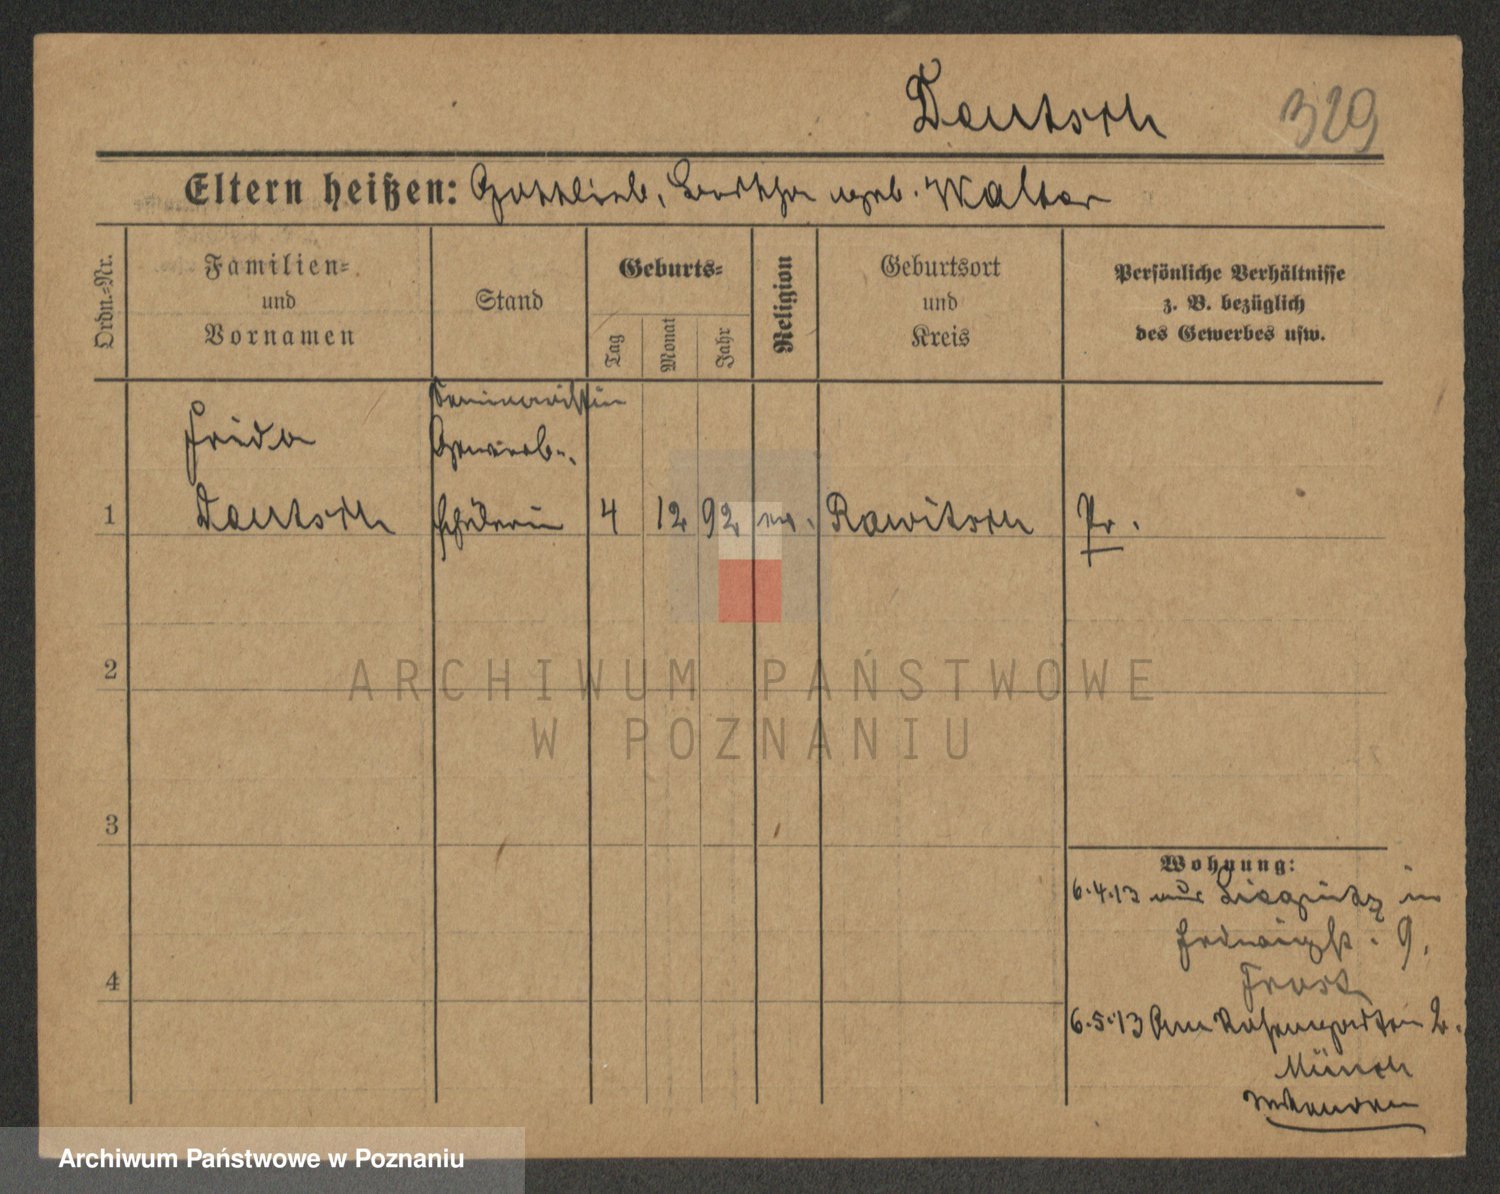 Deutsch 329
Eltern heißen: Gottlieb, Bertha geb. Walter
Ordn.=Nr.
Familien=
und
Vornamen
Stand
Geburts=
Tag
Monat
Jahr
Religion
Geburtsort
und
Kreis
Persönliche Verhältnisse
z. B. bezüglich
des Gewerbes usw.
Seminaristin
Frida
Gewerb-.
1 Deutsch schülerin 4 12 92 ev. Rawitsch Pr.
2
3
4
Wohnung:
6.4.13 aus in
9.
6.5.13 Am Rosengarten 2.
Münch
ARCHIWUM PAŃSTWOWE
W POZNANIU
Archiwum Państwowe w Poznaniu